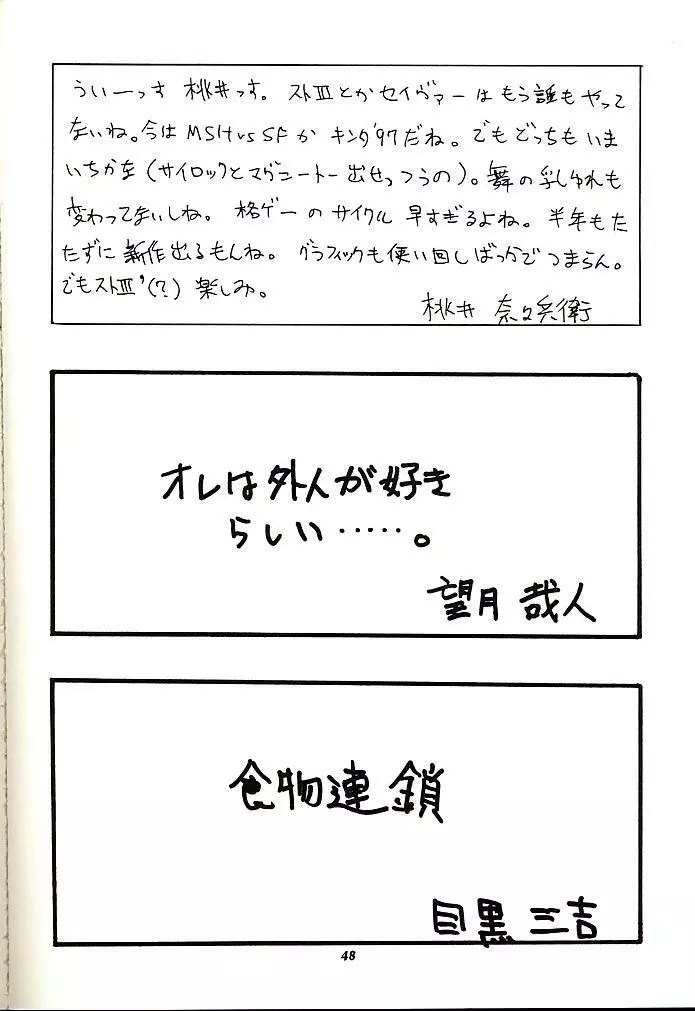 ういーっす 桃井っす。ストⅢとかセイヴァーはもう誰もやって
ないね。今はMSHvsSFかキング'97だね。でもどっちもいま
いちかな(サイロックとマグニートー出せっつうの)。舞の乳しゆれも
変わってないしね。格ゲーのサイクル早すぎるよね。半年もた
たずに新作出るもんね。グラフィックも使い回しばっかでつまらん。
でもストⅢ'(?)楽しみ。
桃井 奈々兵衛
オレは外人が好き
らしい……。
望月 哉人
食物連鎖
目黒 三吉
48